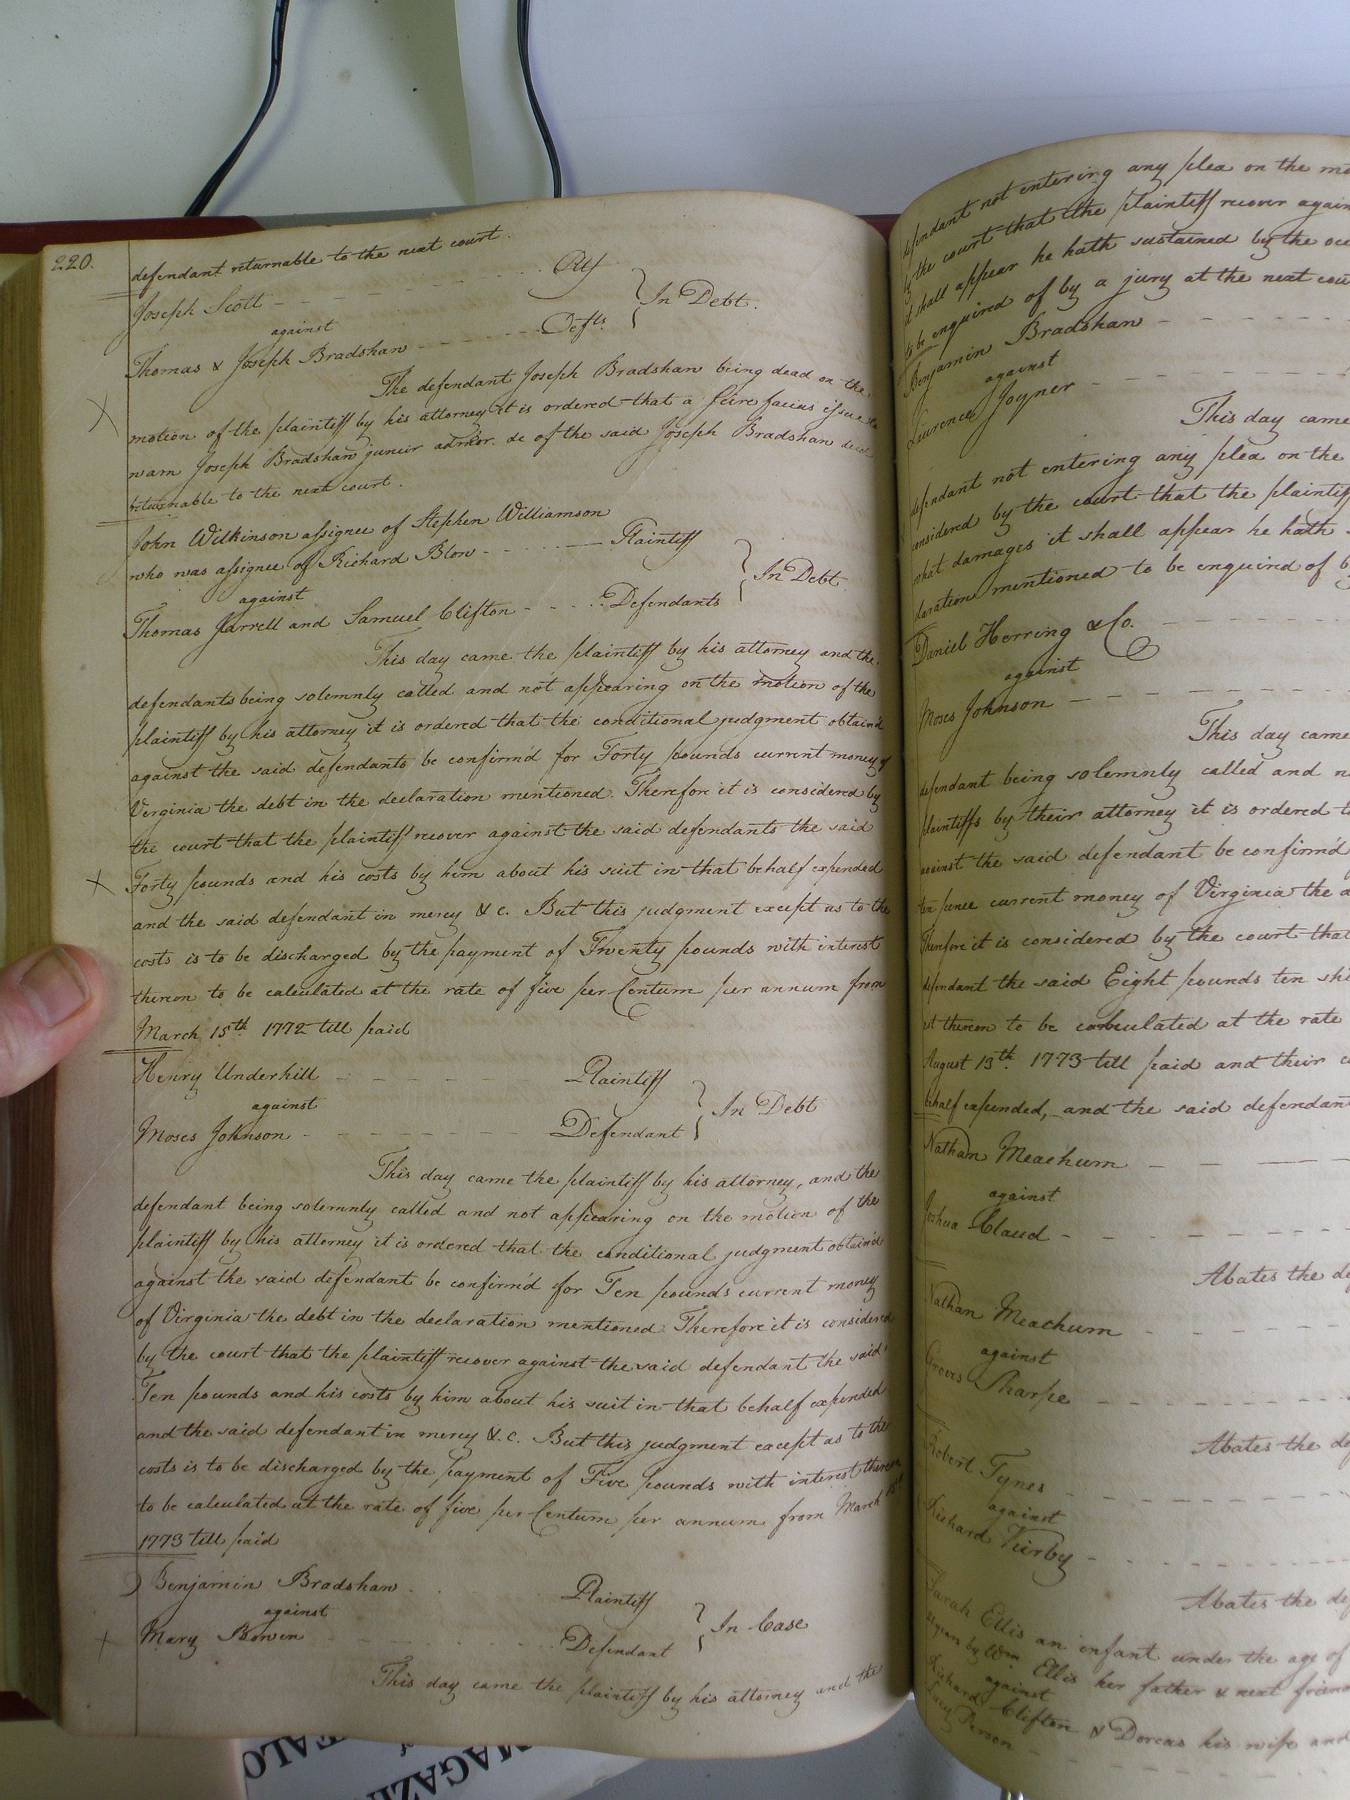 220.
defendant returnable to the next court.
Joseph Scott - - - - - - - Plf
against
Thomas & Joseph Bradshaw - - - - - Defts
} In Debt.
The defendant Joseph Bradshaw being dead on the
motion of the plaintiff by his attorney it is ordered that a scire facias issue to
warn Joseph Bradshaw junior admor. &c of the said Joseph Bradshaw decd
returnable to the next court.
John Wilkinson assignee of Stephen Williamson
who was assignee of Richard Blow - - - - Plaintiff
against
Thomas Jarrell and Samuel Clifton - - - - Defendants
} In Debt
This day came the plaintiff by his attorney and the
defendants being solemnly called and not appearing on the motion of the
plaintiff by his attorney it is ordered that the conditional judgment obtain'd
against the said defendants be confirm'd for Forty pounds current money of
Virginia the debt in the declaration mentioned. Therefore it is considered by
the court that the plaintiff recover against the said defendants the said
Forty pounds and his costs by him about his suit in that behalf expended
and the said defendant in mercy &c. But this judgment except as to the
costs is to be discharged by the payment of Twenty pounds with interest
thereon to be calculated at the rate of five per Centum per annum from
March 15th 1772 till paid
Henry Underhill - - - - - Plaintiff
against
Moses Johnson - - - - - Defendant
} In Debt
This day came the plaintiff by his attorney, and the
defendant being solemnly called and not appearing on the motion of the
plaintiff by his attorney it is ordered that the conditional judgment obtain'd
against the said defendant be confirm'd for Ten pounds current money
of Virginia the debt in the declaration mentioned Therefore it is considered
by the court that the plaintiff recover against the said defendant the said
Ten pounds and his costs by him about his suit in that behalf expended
and the said defendant in mercy &c. But this judgment except as to the
costs is to be discharged by the payment of Five pounds with interest thereon
to be calculated at the rate of five per Centum per annum from March
1773 till paid
Benjamin Bradshaw - - Plaintiff
against
Mary Bowen - - - - - Defendant
} In Case
This day came the plaintiff by his attorney and the
defendant not entering any plea on the
by the court that the plaintiff recover
it shall appear he hath sustained by the
to be enquired of by a jury at the next
Benjamin Bradshaw - - -
against
Laurence Joyner - - - - -
This day came
defendant not entering any plea on the
considered by the court that the plaintiff
what damages it shall appear he hath
declaration mentioned to be enquired of
Daniel Herring & Co. - - - - -
against
Moses Johnson - - - - - -
This day came
defendant being solemnly called and
plaintiffs by their attorney it is ordered
against the said defendant be confirm'd
ten pence current money of Virginia the
Therefore it is considered by the court that
defendant the said Eight pounds ten
est thereon to be calculated at the rate
August 13th. 1773 till paid and their
behalf expended, and the said defendant
Nathan Meachum - - -
against
Joshua Claud - - - - - -
Abates the
Nathan Meachum - - - -
against
Sharpe - - - - - -
Abates the
Robert Tynes - - - - -
against
Richard Kirby - - - - - -
Abates the
Sarah Ellis an infant under the age of
by Wm. Ellis her father & next
against
Richard Clifton & Dorcas his wife and
Lucy Person - - - -
MAGAZI
TALO